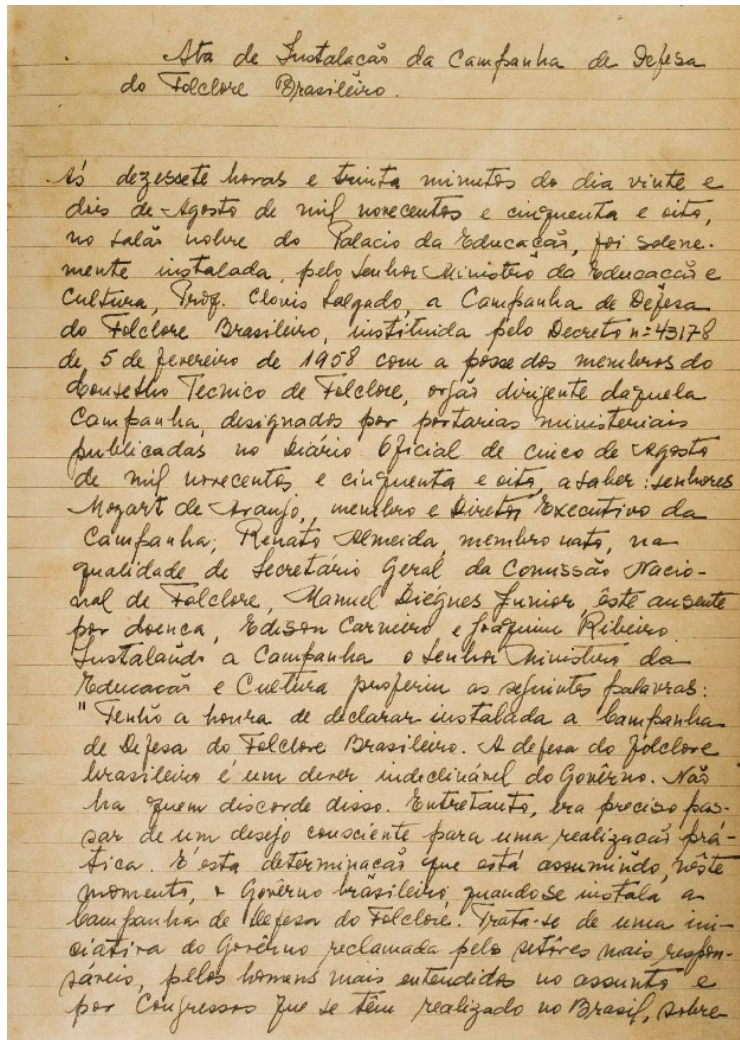 Ata de Instalação da Campanha de Defesa
do Folclore Brasileiro.
Às dezessete horas e trinta minutos do dia vinte e
dois de Agosto de mil novecentos e cinquenta e oito,
no salão nobre do Palacio da Educação, foi solene-
mente instalada, pelo Senhor Ministro da Educação e
Cultura, Prof. Clovis Salgado, a Campanha de Defesa
do Folclore Brasileiro, instituida pelo Decreto nº 43178
de 5 de fevereiro de 1958 com a posse dos membros do
Conselho Tecnico de Folclore, orgão dirigente daquela
Campanha, designados por portarias ministeriais
publicadas no Diário Oficial de cinco de Agosto
de mil novecentos e cinquenta e oito, a saber: senhores
Mozart de Araujo, membro e Diretor Executivo da
Campanha; Renato Almeida, membro nato, na
qualidade de Secretário Geral da Comissão Nacio-
nal de Folclore, Manuel Diégues Junior, êste ausente
por doença, Edison Carneiro e Joaquim Ribeiro.
Instalando a Campanha o Senhor Ministro da
Educação e Cultura proferiu as seguintes palavras:
"Tenho a honra de declarar instalada a Campanha
de Defesa do Folclore Brasileiro. A defesa do folclore
brasileiro é um dever indeclinável do Govêrno. Não
ha quem discorde disso. Entretanto, era preciso pas-
sar de um desejo consciente para uma realização prá-
tica. É esta determinação que está assumindo, nêste
momento, o Govêrno brasileiro, quando se instala a
Campanha de Defesa do Folclore. Trata-se de uma ini-
ciativa do Govêrno reclamada pelo setôres mais respon-
sáveis, pelos homens mais entendidos no assunto e
por Congressos que se têm realizado no Brasil, sobre